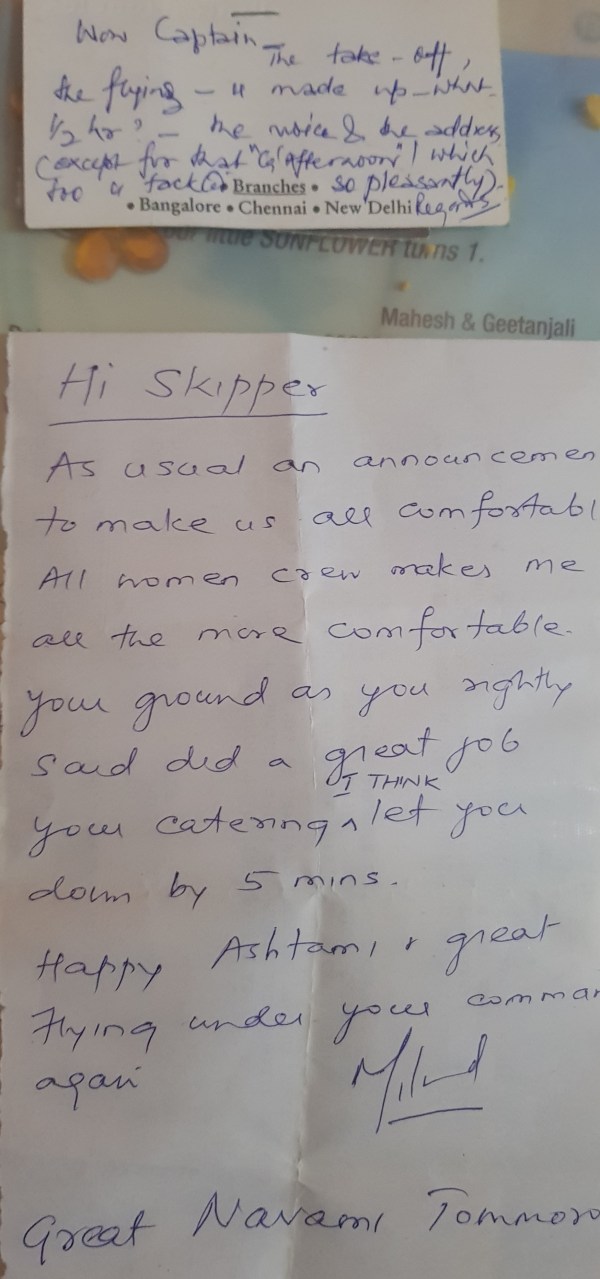 Wow Captain
The take-off,
the flying - u made up - what
1/2 hr? - the voice & the address
(except for that "G' Afternoon"! which
too u tackled so pleasantly).
Branches •
• Bangalore • Chennai • New Delhi Regards
our little SUNFLOWER turns 1.
Mahesh & Geetanjali
Hi Skipper
As usual an announcemen
to make us all comfortabl
All women crew makes me
all the more comfortable.
Your ground as you rightly
said did a great job
I THINK
your catering ^ let you
down by 5 mins.
Happy Ashtami & great
Flying under your comman
again
Milind
Great Navami Tommoro